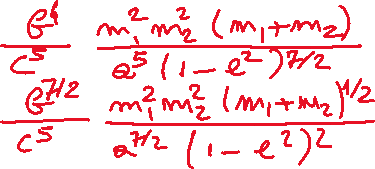 G^4/c^5 m_1^2 m_2^2 (m_1+m_2)/a^5 (1-e^2)^{7/2}
G^{7/2}/c^5 m_1^2 m_2^2 (m_1+m_2)^{1/2}/a^{7/2} (1-e^2)^2